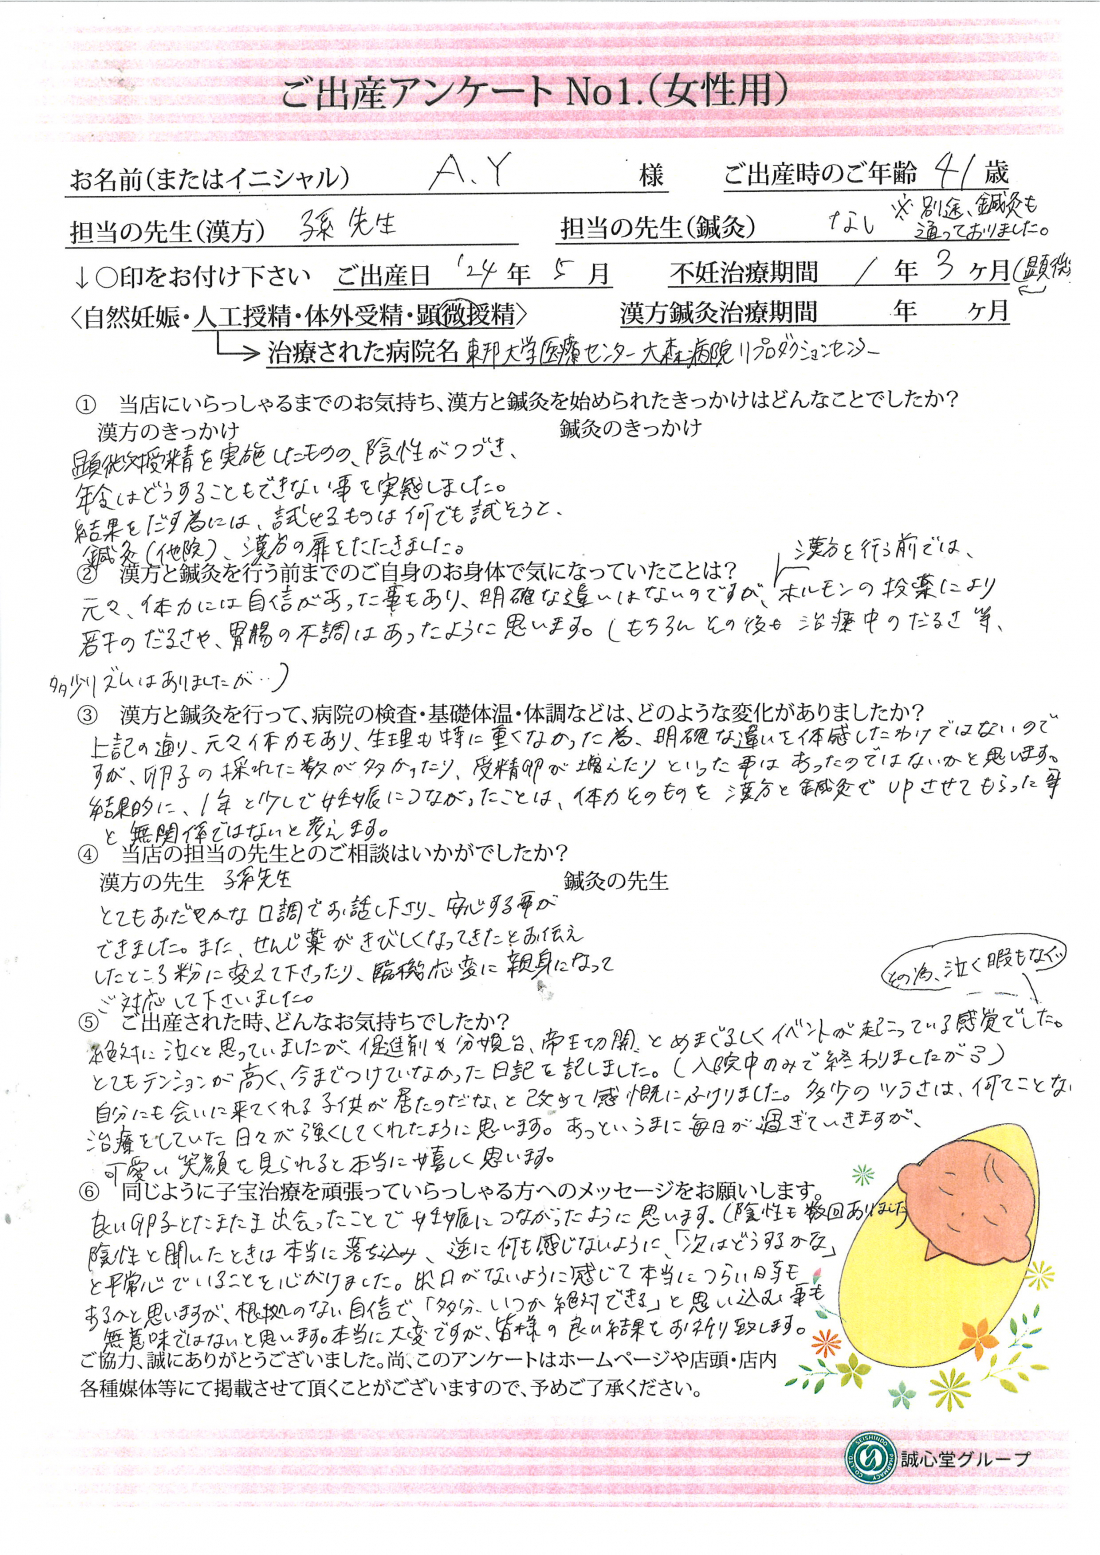 ご出産アンケート No1.(女性用)
お名前(またはイニシャル) A.Y 様 ご出産時のご年齢 41 歳
担当の先生(漢方) 孫先生 担当の先生(鍼灸) なし ※別途、鍼灸も
通っておりました。
↓〇印をお付け下さい ご出産日 '24年 5月 不妊治療期間 1年3ヶ月(顕微
〈自然妊娠・人工授精・体外受精・顕微授精〉 漢方鍼灸治療期間 年 ヶ月
治療された病院名 東邦大学医療センター大森病院リプロダクションセンター
① 当店にいらっしゃるまでのお気持ち、漢方と鍼灸を始められたきっかけはどんなことでしたか?
漢方のきっかけ 鍼灸のきっかけ
顕微授精を実施したものの、陰性がつづき、
年令はどうすることもできない事を実感しました。
結果をだす為には、試せるものは何でも試そうと、
鍼灸(他院)、漢方の扉をたたきました。
② 漢方と鍼灸を行う前までのご自身のお身体で気になっていたことは?
漢方を行う前では、
元々、体力には自信があった事もあり、明確な違いはないのですが、ホルモンの投薬により
若干のだるさや、胃腸の不調はあったように思います。(もちろんその後も治療中のだるさ等、
多少リズムはありましたが‥)
③ 漢方と鍼灸を行って、病院の検査・基礎体温・体調などは、どのような変化がありましたか?
上記の通り、元々体力もあり、生理も特に重くなかった為、明確な違いを体感したわけではないので
すが、卵子の採れた数が多かったり、受精卵が増えたりといった事はあったのではないかと思います。
結果的に、1年と少しで妊娠につながったことは、体力そのものを漢方と鍼灸でUPさせてもらった事
と無関係ではないと考えます。
④ 当店の担当の先生とのご相談はいかがでしたか?
漢方の先生 孫先生 鍼灸の先生
とてもおだやかな口調でお話し下さり、安心する事が
できました。また、せんじ薬がきびしくなってきたとお伝え
したところ粉に変えて下さったり、臨機応変に親身になって
ご対応して下さいました。
その為、泣く暇もなく
⑤ ご出産された時、どんなお気持ちでしたか?
絶対に泣くと思っていましたが、促進剤や分娩台、帝王切開、とめまぐるしくイベントが起こっている感覚でした。
とてもテンションが高く、今までつけていなかった日記を記しました。(入院中のみで終わりましたが)
自分にも会いに来てくれる子供が居たのだな、と改めて感慨にふけりました。多少のツラさは、何てことな
治療をしていた日々が強くしてくれたように思います。あっというまに毎日が過ぎていきますが、
可愛い笑顔を見られると本当に嬉しく思います。
⑥ 同じように子宝治療を頑張っていらっしゃる方へのメッセージをお願いします。
良い卵子とたまたま出会ったことで妊娠につながったように思います。(陰性も数回ありました)
陰性と聞いたときは本当に落ち込み、逆に何も感じないように、「次はどうするかな」
と平常心でいることを心がけました。出口がないように感じて本当につらい日等も
あるかと思いますが、根拠のない自信で、「多分、いつか絶対できる」と思い込む事も
無意味ではないと思います。本当に大変ですが、皆様の良い結果をお祈り致します。
ご協力、誠にありがとうございました。尚、このアンケートはホームページや店頭・店内
各種媒体等にて掲載させて頂くことがございますので、予めご了承ください。
誠心堂グループ